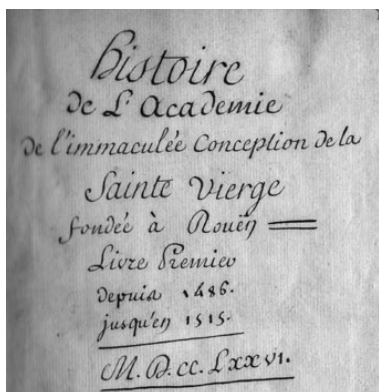 Histoire
de L'Academie
de l'immaculée Conception de la
Sainte Vierge
fondée à Rouën
Livre Premier
depuis 1486.
jusqu'en 1515.
M.D.cc.Lxxvi.